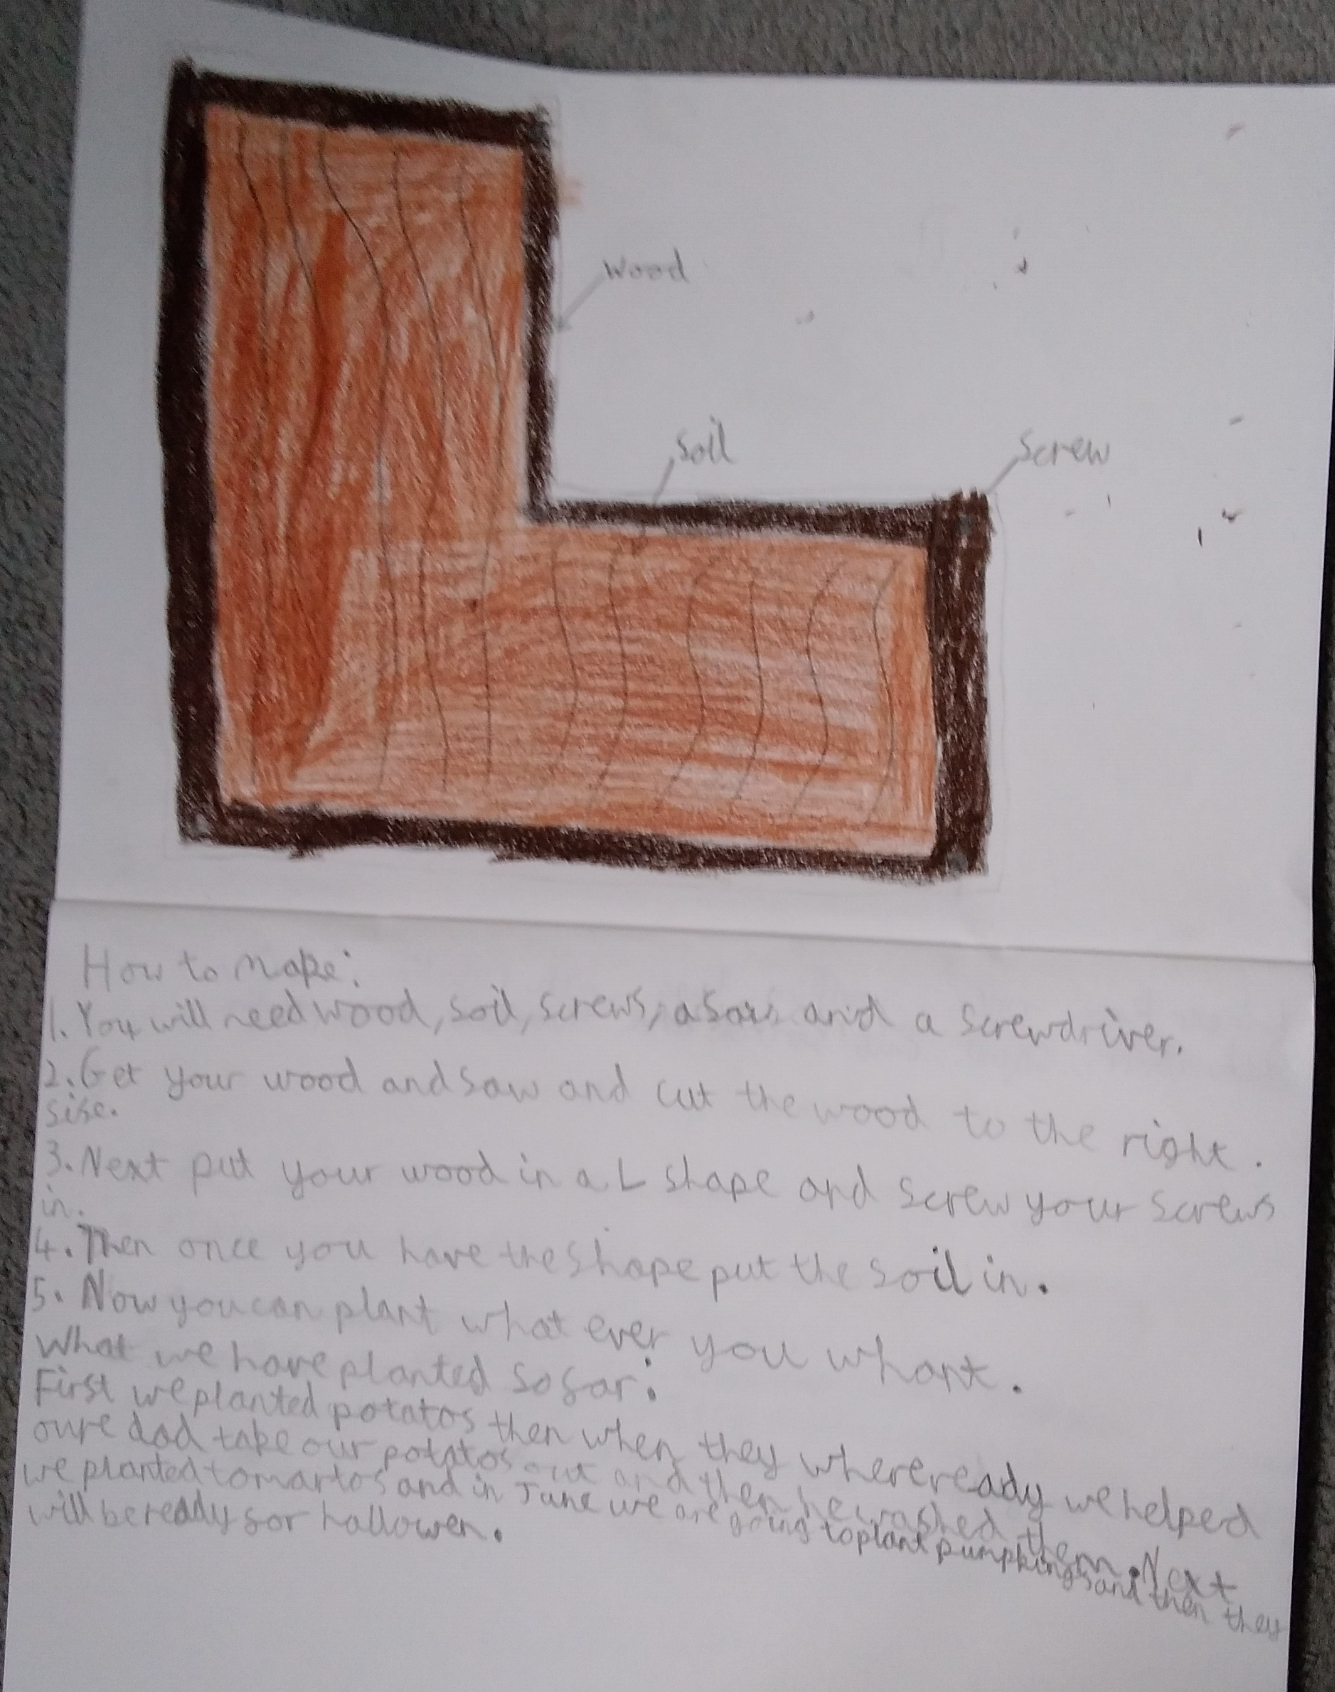 wood
soil
screw
How to make:
1. You will need wood, soil, screws, a saw and a screwdriver.
2. Get your wood and saw and cut the wood to the right.
sise.
3. Next put your wood in a L shape and screw your screws
in.
4. Then once you have the shape put the soil in.
5. Now you can plant what ever you whant.
What we have planted so far:
First we planted potatos then when they where ready we helped
oure dad take our potatos out and then he washed them. Next
we planted tomartos and in June we are going to plant pumpkings and then they
will be ready for hallowen.